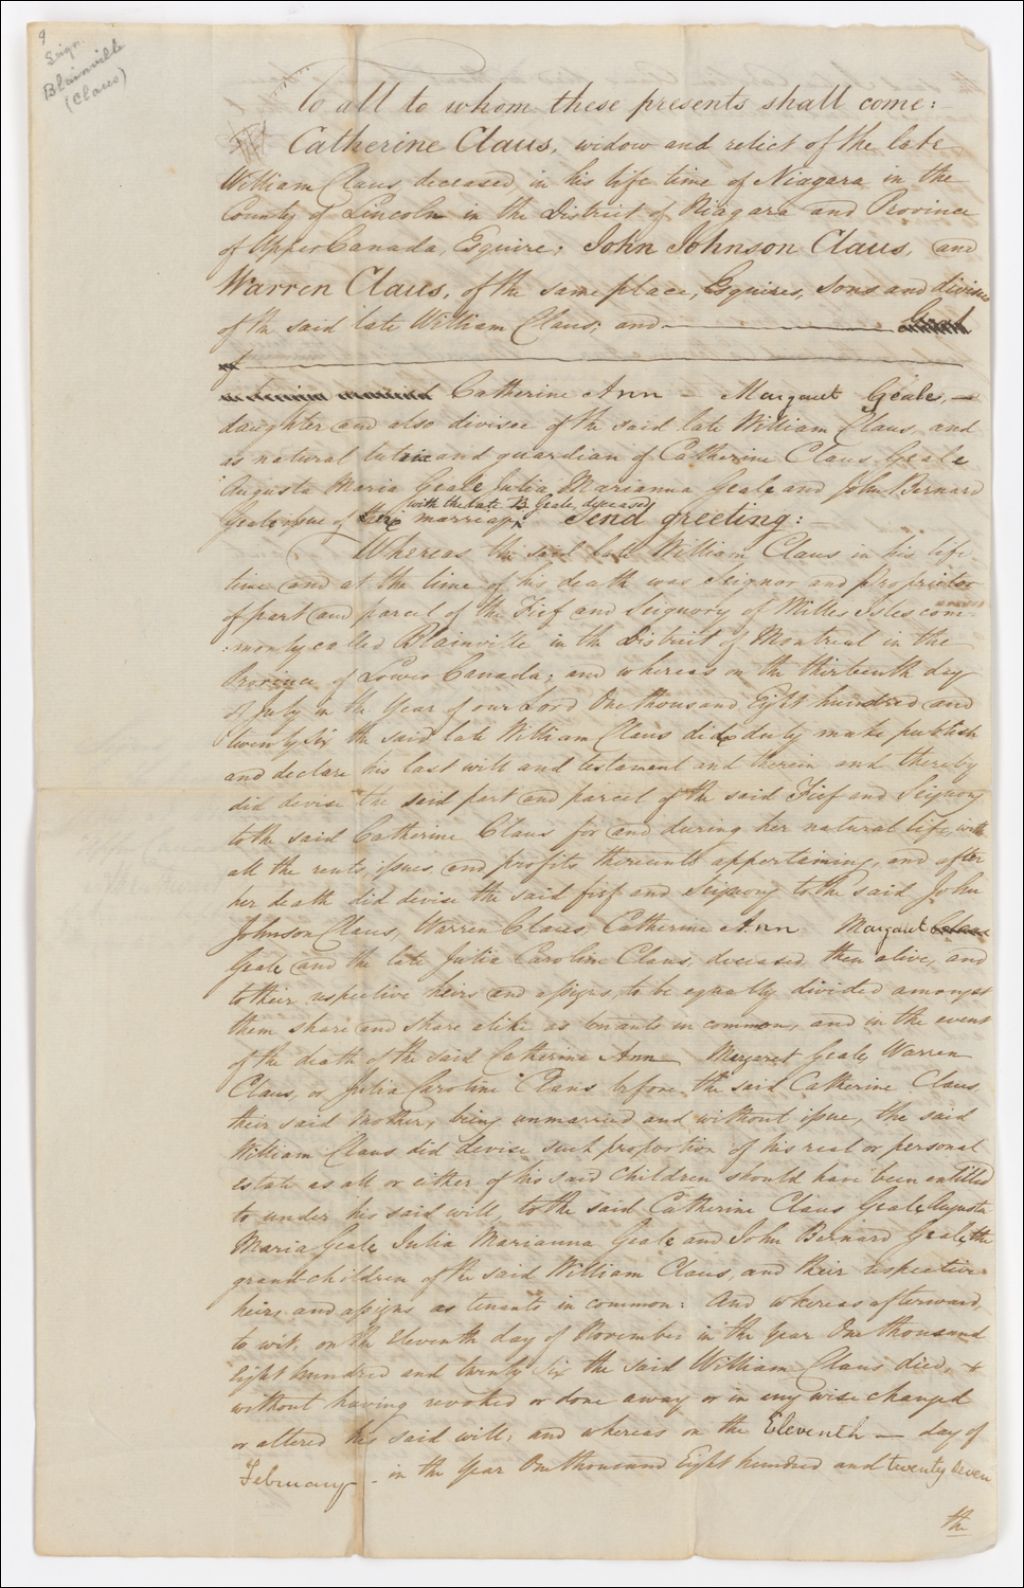 9
Seign.
Blainville
(Claus)
To all to whom these presents shall come:
Catherine Claus, widow and relict of the late
William Claus deceased, in his life time of Niagara in the
County of Lincoln in the District of Niagara and Province
of Upper Canada, Esquire; John Johnson Claus, and
Warren Claus, of the same place, Esquires, Sons and divisees
of the said late William Claus; and
Catherine Ann - Margaret Geale, -
daughter and also divisee of the said late William Claus, and
as natural tutrix and guardian of Catherine Claus Geale
Augusta Maria Geale Julia Marianna Geale and John Bernard
with the late B. Geale, deceased
Geale issue of her marriage. Send greeting:
Whereas the said late William Claus in his life
time and at the time of his death was Seignor and Proprietor
of part and parcel of the Fief and Seignory of Milles Isles com-
:monly called Blainville in the District of Montreal in the
Province of Lower Canada; and whereas on the thirteenth day
of July in the Year of our Lord One thousand Eight hundred and
twenty six the said late William Claus did duly make publish
and declare his last will and testament and therein and thereby
did devise the said part and parcel of the said Fief and Seignory
to the said Catherine Claus for and during her natural life, with
all the rents, issues and profits thereunto appertaining, and after
her death did devise the said fief and Seignory to the said John
Johnson Claus, Warren Claus, Catherine Ann Margaret
Geale and the late Julia Caroline Claus, deceased, then alive, and
to their respective heirs and assigns, to be equally divided amongst
them share and share alike as tenants in common, and in the event
of the death of the said Catherine Ann Margaret Geale, Warren
Claus, or Julia Caroline Claus before the said Catherine Claus,
their said Mother, being unmarried and without issue, the said
William Claus did devise such proportion of his real or personal
estate as all or either of his said Children should have been entitled
to under his said will, to the said Catherine Claus Geale, Augusta
Maria Geale, Julia Marianna Geale and John Bernard Geale, the
grand-children of the said William Claus, and their respective
heirs and assigns as tenants in common: And whereas afterward,
to wit, on the Eleventh day of November in the Year One thousand
Eight hundred and twenty six the said William Claus died, &
without having revoked or done away or in any wise changed
or altered his said will; and whereas on the Eleventh - day of
February - in the Year One thousand Eight hundred and twenty seven
the